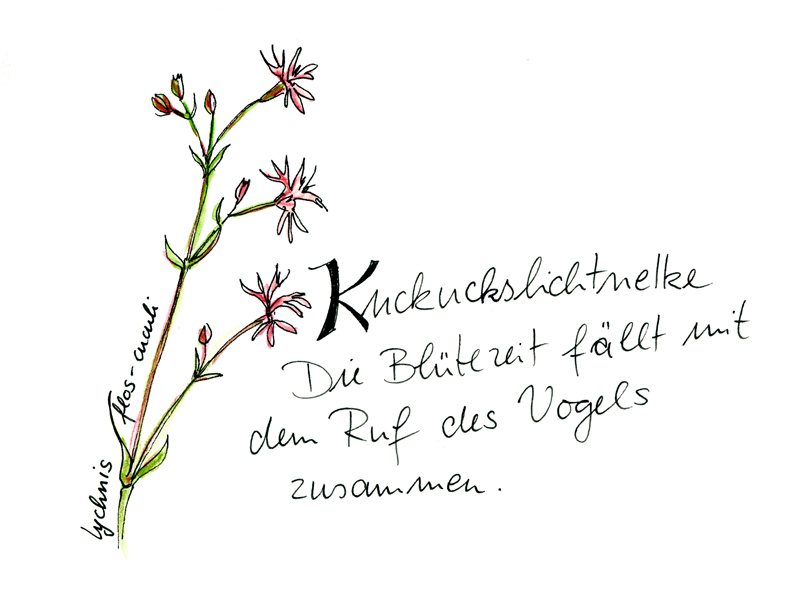 Kuckuckslichtnelke
Die Blütezeit fällt mit
dem Ruf des Vogels
zusammen.
Lychnis
flos-cuculi